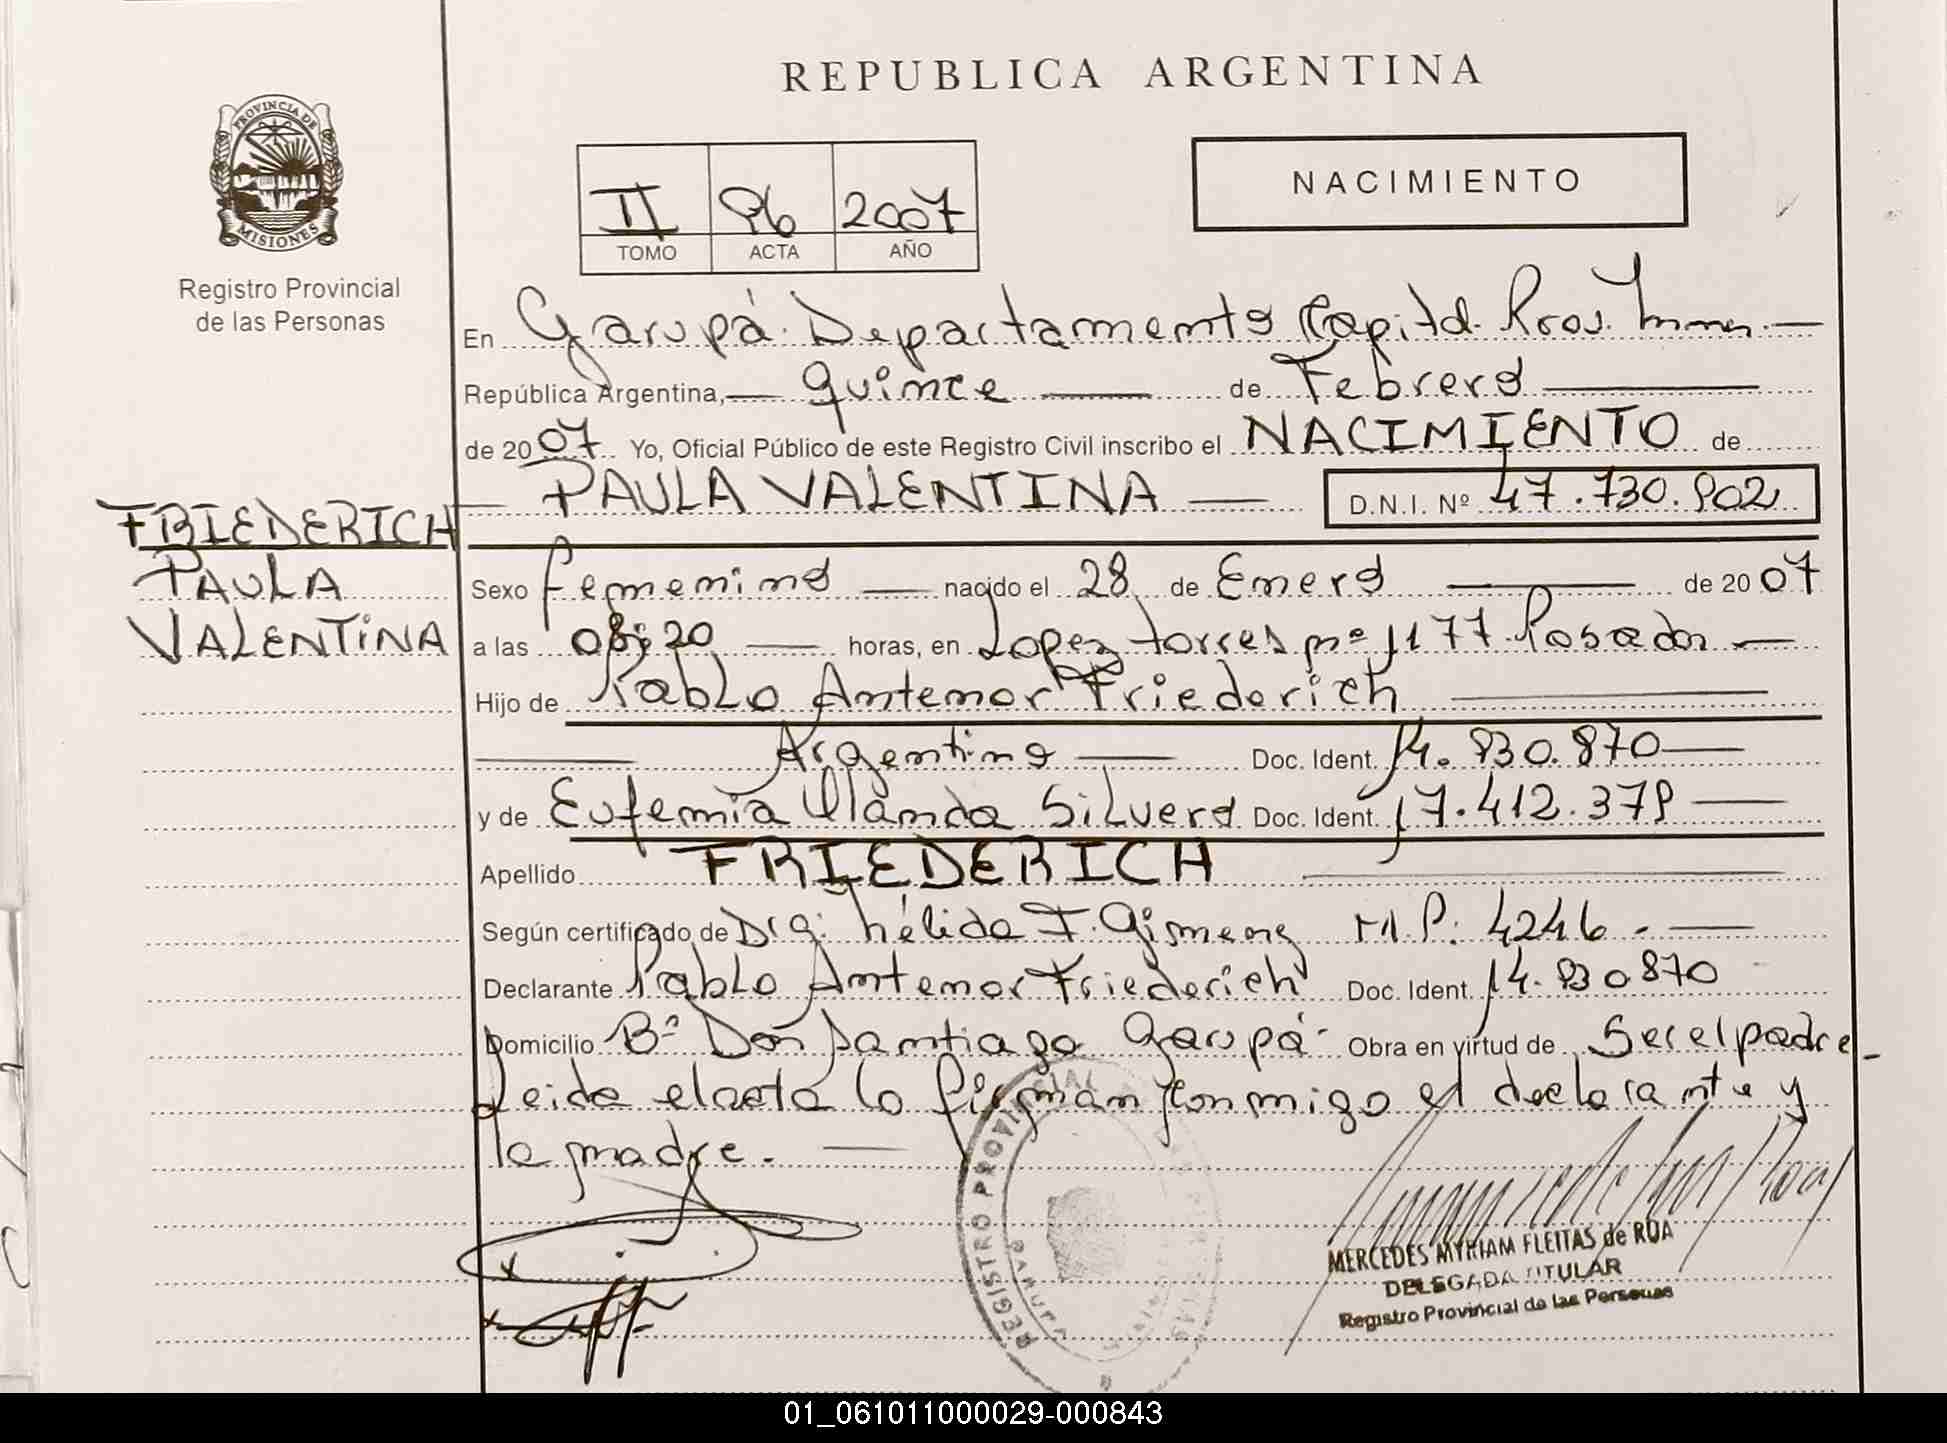 REPUBLICA ARGENTINA
PROVINCIA DE MISIONES
Registro Provincial
de las Personas
NACIMIENTO
II 96 2007
TOMO ACTA AÑO
En Garupá. Departamento Capital. Prov. Mnes. —
República Argentina, — quince — de Febrero —
de 2007. Yo, Oficial Público de este Registro Civil inscribo el NACIMIENTO de
— PAULA VALENTINA — D.N.I. Nº 47.730.902
FRIEDERICH
PAULA
VALENTINA
Sexo femenino — nacido el 28 de Enero — de 2007
a las 08:20 — horas, en Lopez torres nº 1177 Posadas —
Hijo de Pablo Antenor Friederich —
— Argentino — Doc. Ident. 14.930.870 —
y de Eufemia Silvero Doc. Ident. 17.412.379 —
Apellido FRIEDERICH —
Según certificado de Dra: hélida F. M.P: 4246. —
Declarante Pablo Antenor Friederich Doc. Ident. 14.930870
Domicilio Bº Don Santiago Garupá. Obra en virtud de Ser el padre.
Leida el acta la firman conmigo el declarante y
la madre. —
REGISTRO PROVINCIAL
MERCEDES MYRIAM FLEITAS de ROA
DELEGADA TITULAR
Registro Provincial de las Personas
01_061011000029-000843